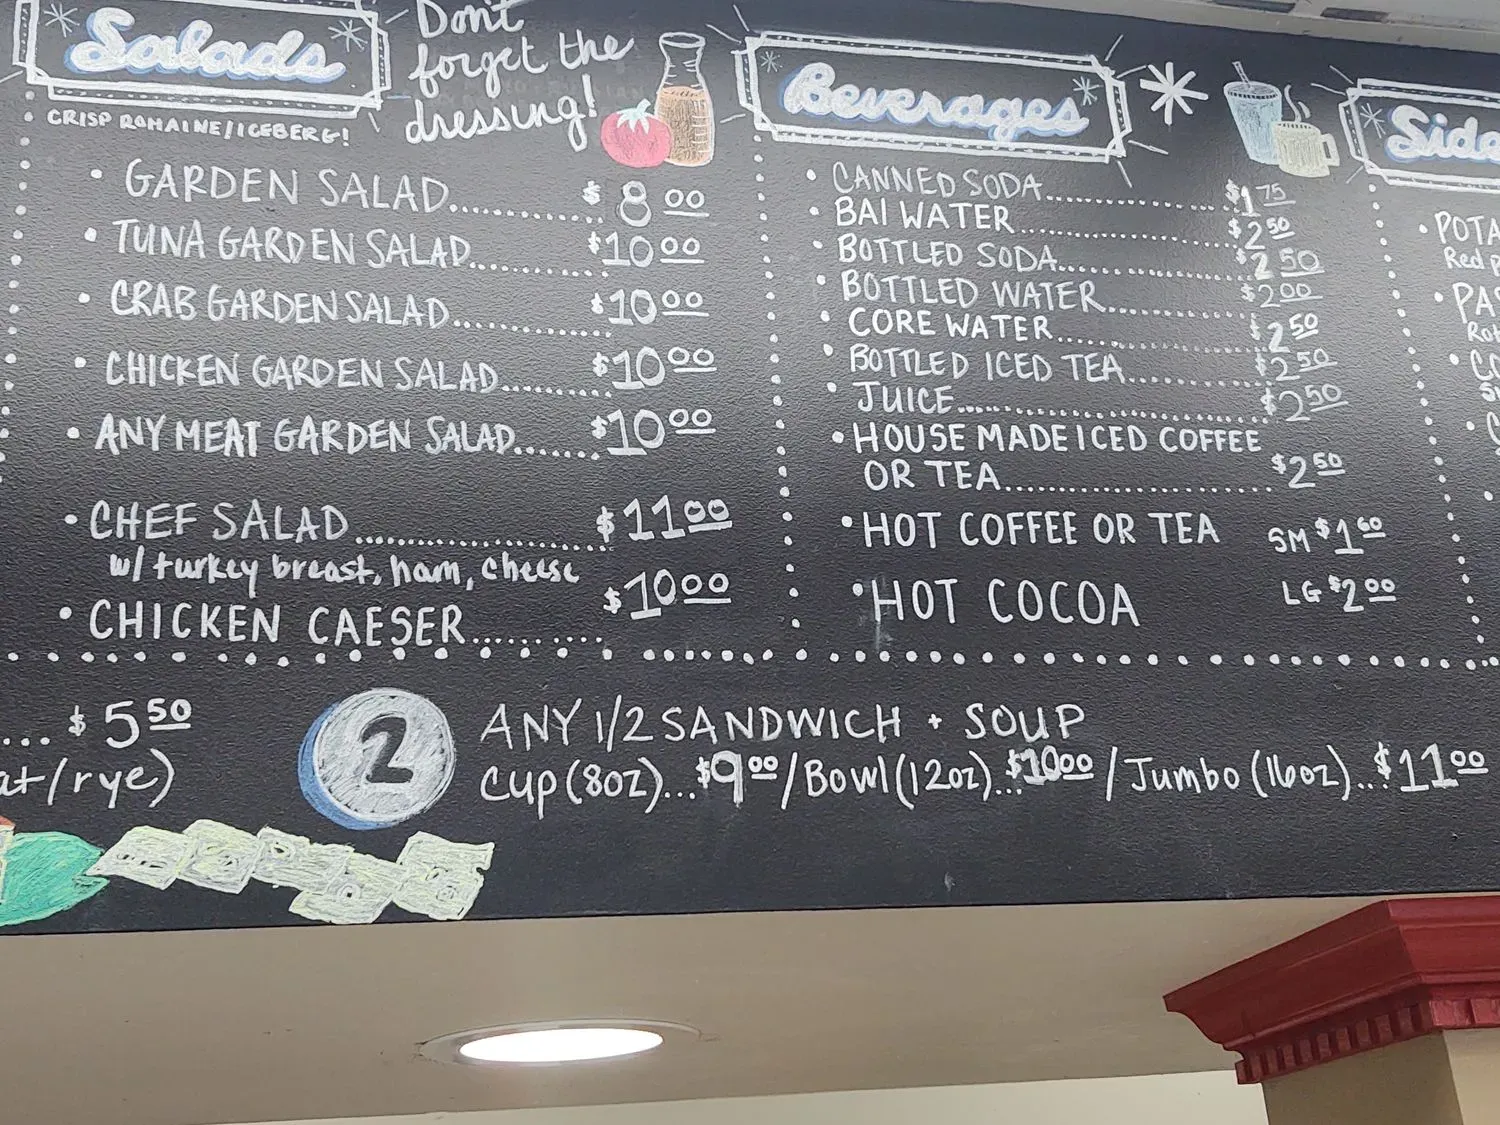 Salads
CRISP ROMAINE/ICEBERG!
Don't
forget the
dressing!
• GARDEN SALAD........ $8.00
• TUNA GARDEN SALAD........ $10.00
• CRAB GARDEN SALAD........ $10.00
• CHICKEN GARDEN SALAD........ $10.00
• ANY MEAT GARDEN SALAD........ $10.00
• CHEF SALAD........ $11.00
w/ turkey breast, ham, cheese
• CHICKEN CAESER........ $10.00
Beverages
• CANNED SODA........ $1.75
• BAI WATER........ $2.50
• BOTTLED SODA........ $2.50
• BOTTLED WATER........ $2.00
CORE WATER........ $2.50
• BOTTLED ICED TEA........ $2.50
• JUICE........ $2.50
• HOUSE MADE ICED COFFEE
OR TEA........ $2.50
• HOT COFFEE OR TEA SM $1.60
• HOT COCOA LG $2.00
Side
• POTA
Red p
• PA
... $5.50
at/rye)
2
ANY 1/2 SANDWICH + SOUP
Cup (8oz)...$9.00/Bowl (12oz)...$10.00/Jumbo (16oz)...$11.00